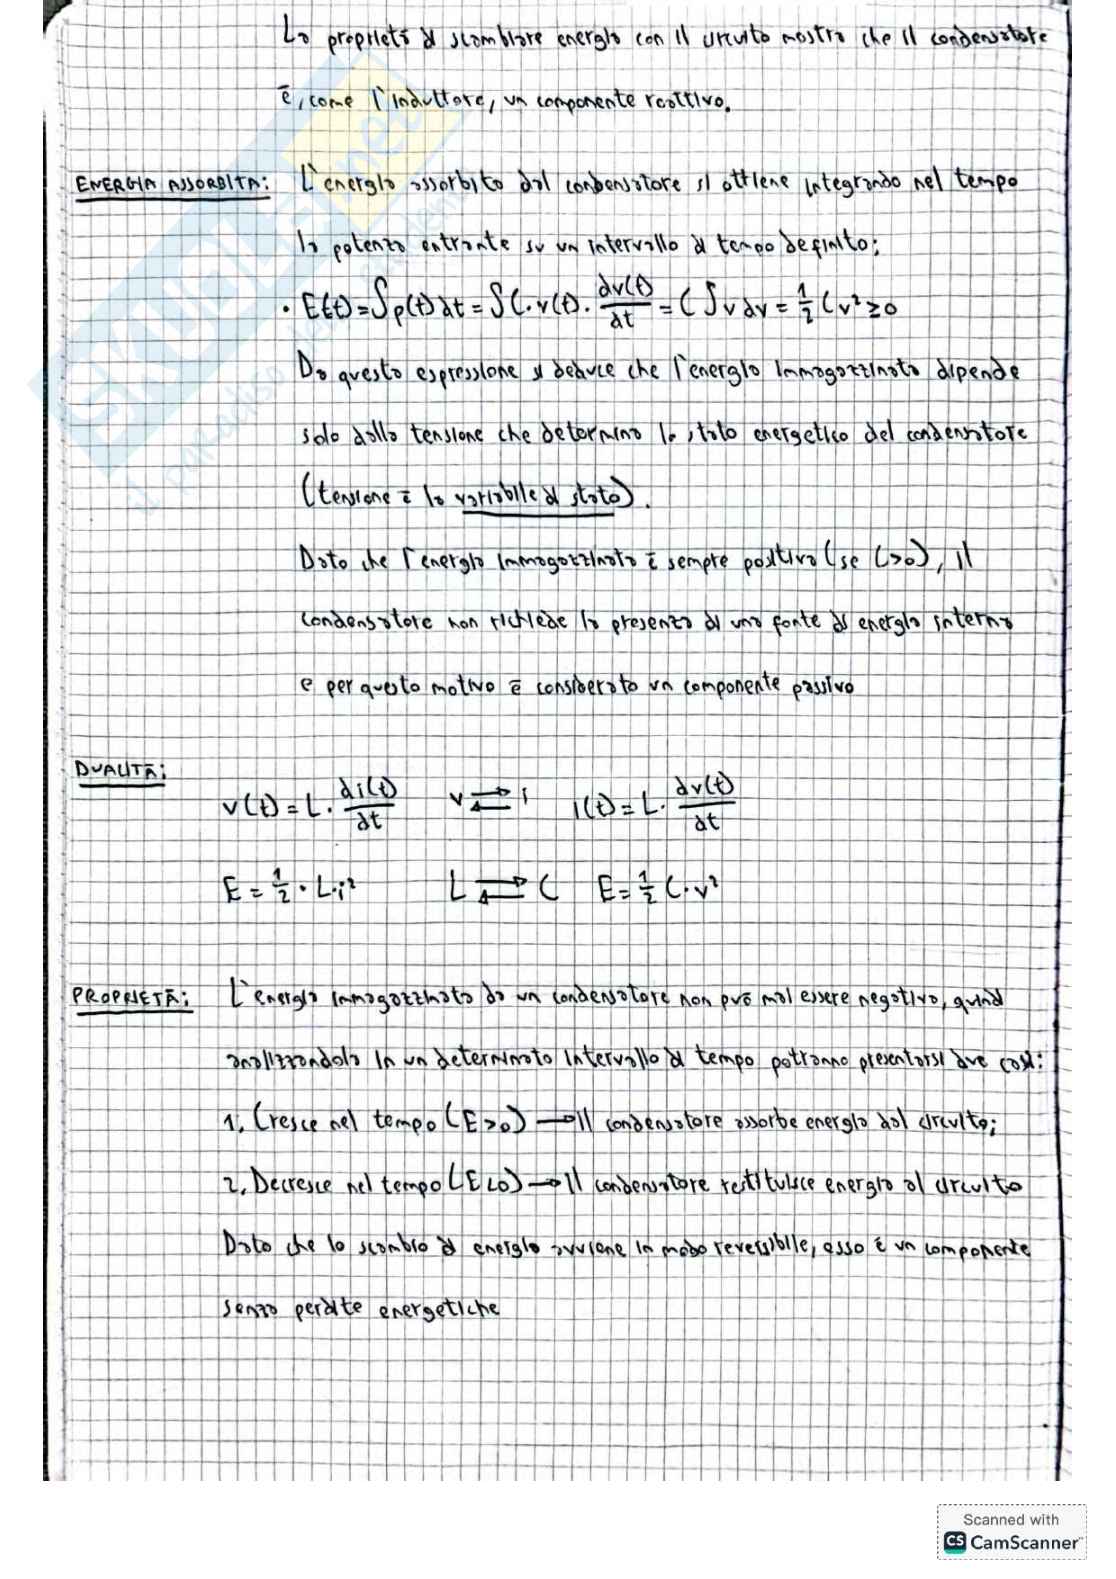 La proprietà di scambiare energia con il circuito mostra che il condensatore
è, come l'induttore, un componente reattivo.
ENERGIA ASSORBITA: L'energia assorbita dal condensatore si ottiene integrando nel tempo
la potenza entrante su un intervallo di tempo definito:
• E(t)=∫p(t)dt=∫C·v(t)·dv(t)/dt=C∫v dv=1/2 Cv²≥0
Da questa espressione si deduce che l'energia immagazzinata dipende
solo dalla tensione che determina lo stato energetico del condensatore
(tensione è la variabile di stato).
Dato che l'energia immagazzinata è sempre positiva (se C>0), il
condensatore non richiede la presenza di una fonte di energia interna
e per questo motivo è considerato un componente passivo
DUALITÀ:
v(t)=L·di(t)/dt v⇄i i(t)=L·dv(t)/dt
E=1/2·L·i² L⇄C E=1/2 C·v²
PROPRIETÀ: L'energia immagazzinata da un condensatore non può mai essere negativa, quindi
analizzandola in un determinato intervallo di tempo potranno presentarsi due casi:
1. Cresce nel tempo (E>0) → Il condensatore assorbe energia dal circuito;
2. Decresce nel tempo (E<0) → Il condensatore restituisce energia al circuito
Dato che lo scambio di energia avviene in modo reversibile, esso è un componente
senza perdite energetiche
SKUOLA.net
il paradiso dello studente
Scanned with
CS CamScanner